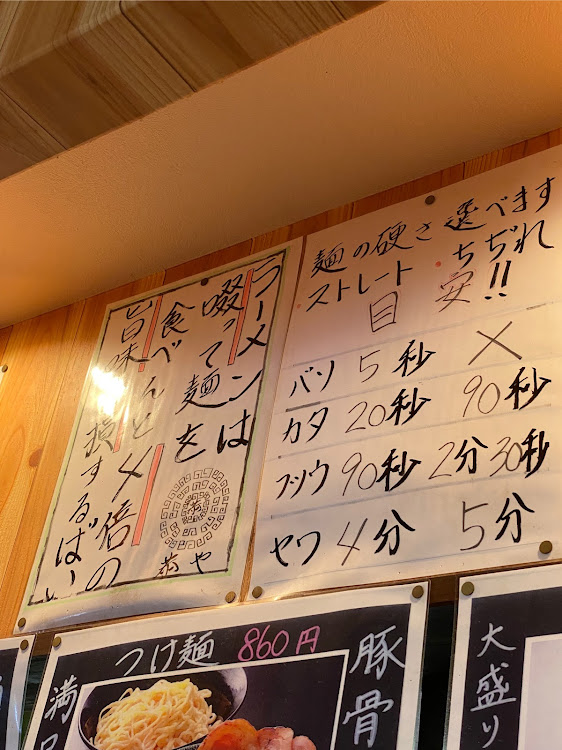 麺の硬さ選べます
ストレート ちぢれ
目安!!
バソ 5秒 ×
カタ 20秒 90秒
フツウ 90秒 2分30秒
ヤワ 4分 5分
ラーメンは
啜って麺を
食べんと4倍の
旨味損するばい
や
つけ麺 860円
豚骨
満
大盛り